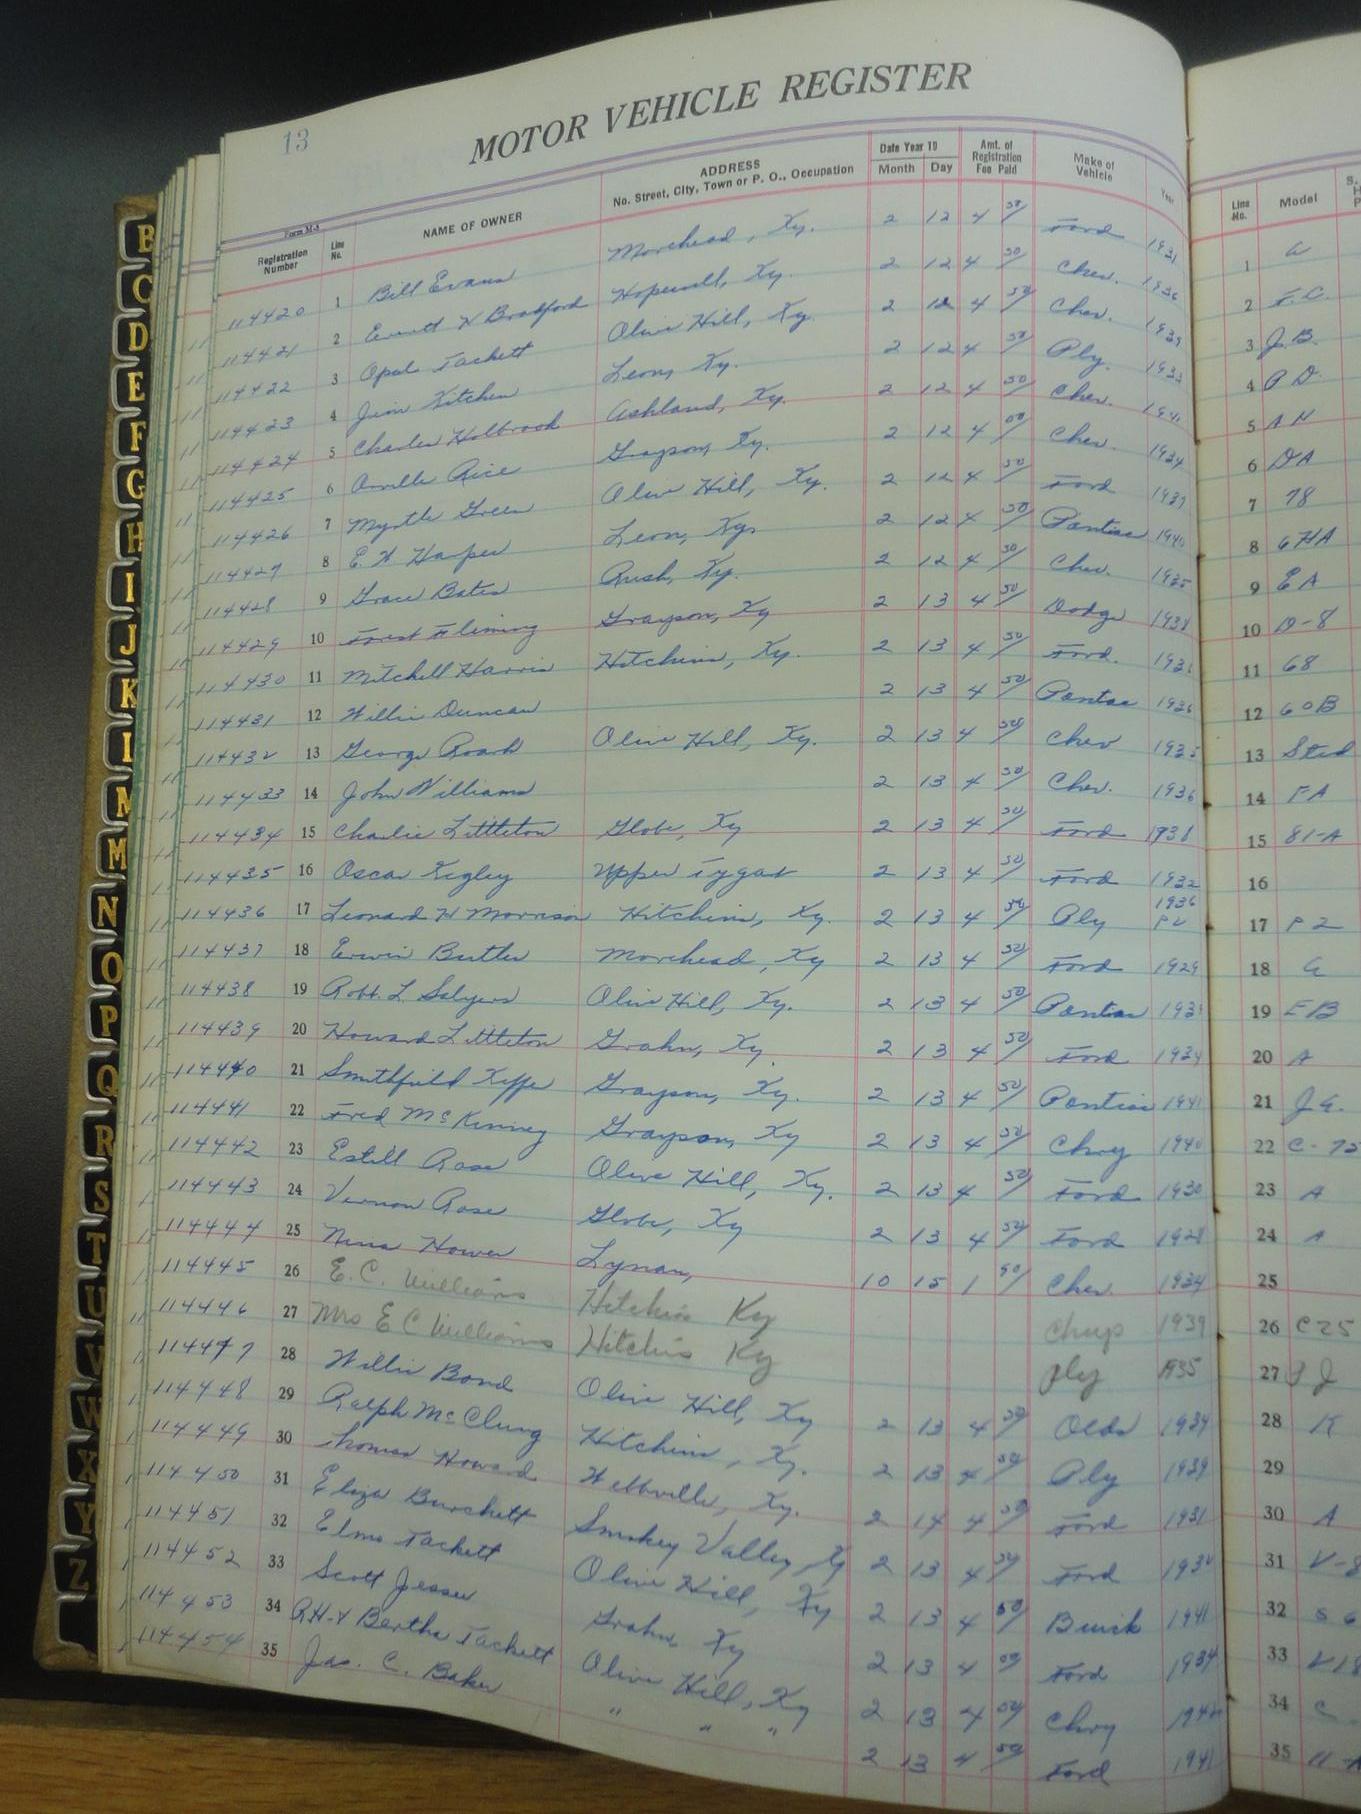 13
MOTOR VEHICLE REGISTER
Form M-3
Registration Number Line No. NAME OF OWNER ADDRESS No. Street, City, Town or P. O., Occupation Date Year 19 Month Day Amt. of Registration Fee Paid Make of Vehicle Year Line No. Model
114420 1 Bill Evans Morehead, Ky. 2 12 4 50 Ford 1931 1 A
114421 2 Everett W Bradford Hopewell, Ky. 2 12 4 50 Chev. 1936 2 F.C.
114422 3 Opal Tackett Olive Hill, Ky. 2 12 4 50 Chev. 1939 3 J.B.
114423 4 Jim Kitchen Leon, Ky. 2 12 4 50 Ply. 1933 4 P D.
114424 5 Charles Holbrook Ashland, Ky. 2 12 4 50 Chev. 1941 5 A H
114425 6 Orville Rice Grayson, Ky. 2 12 4 00 Chev. 1934 6 DA
114426 7 Myrtle Green Olive Hill, Ky. 2 12 4 50 Ford 1937 7 78
114427 8 E. W Harper Leon, Ky. 2 12 4 50 Pontiac 1940 8 6HA
114428 9 Grace Bates Rush, Ky. 2 12 4 50 Chev. 1935 9 E A
114429 10 Forest Fleming Grayson, Ky 2 13 4 50 Dodge 1938 10 D-8
114430 11 Mitchell Harris Hitchins, Ky. 2 13 4 50 Ford. 1936 11 68
114431 12 Willie Duncan 2 13 4 50 Pontiac 1936 12 60B
114432 13 George Roark Olive Hill, Ky. 2 13 4 50 Chev 1935 13 Std
114433 14 John Williams 2 13 4 50 Chev. 1936 14 FA
114434 15 Charlie Littleton Globe, Ky 2 13 4 50 Ford 1938 15 81-A
114435 16 Oscar Kegley Upper Tygart 2 13 4 50 Ford 1932 16
114436 17 Leonard H Morrison Hitchins, Ky. 2 13 4 50 Ply 1936 P2 17 P 2
114437 18 Erwin Butler Morehead, Ky 2 13 4 50 Ford 1929 18 A
114438 19 Robt. L Salyers Olive Hill, Ky. 2 13 4 50 Pontiac 19 EB
114439 20 Howard Littleton Grahn, Ky. 2 13 4 50 Ford 1929 20 A
114440 21 Smithfield Keffer Grayson, Ky. 2 13 4 50 Pontiac 1941 21 J.A.
114441 22 Fred McKinney Grayson, Ky 2 13 4 50 Chry 1940 22
114442 23 Estill Rose Olive Hill, Ky. 2 13 4 50 Ford 1930 23 A
114443 24 Vernon Rose Globe, Ky 2 13 4 50 Ford 1928 24 A
114444 25 Nina Hower Lynan, 10 15 1 90 Chev. 1934 25
114445 26 E. C. Williams Hitchins Ky Chrys 1939 26 C25
114446 27 Mrs E C Williams Hitchins Ky Ply 1935 27 P J
114447 28 Willie Bond Olive Hill, Ky 2 13 4 50 Olds 1934 28 K
114448 29 Ralph McClung Hitchins, Ky. 2 13 4 50 Ply 1939 29
114449 30 Thomas Howard Webbville, Ky. 2 14 4 50 Ford 1931 30 A
114450 31 Eliza Burchett Smokey Valley, Ky 2 13 4 50 Ford 31 V-8
114451 32 Elmo Tackett Olive Hill, Ky 2 13 4 50 Buick 1941 32
114452 33 Scott Jesse Grahn, Ky 2 13 4 50 Ford 1934 33
114453 34 R.H. & Bertha Tackett Olive Hill, Ky 2 13 4 50 Chry 34 C
114454 35 Jas. C. Baker " " " 2 13 4 50 Ford 1941 35 11-A
B
C
D
E
F
G
H
I
J
K
L
M
M
N
O
P
Q
R
S
T
U
V
W
X
Y
Z